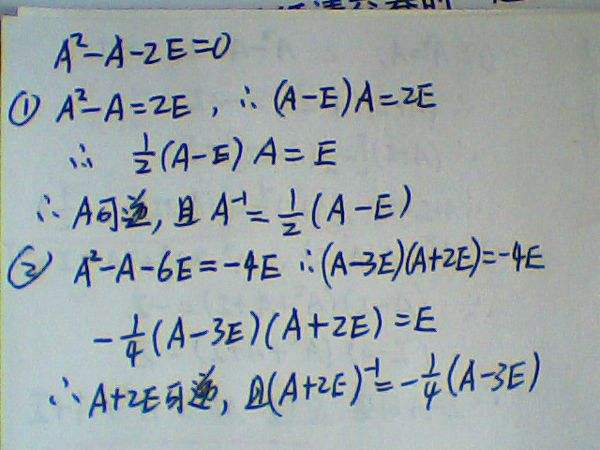 A²-A-2E=0
① A²-A=2E, ∴(A-E)A=2E
∴ 1/2(A-E)A=E
∴A可逆,且A⁻¹=1/2(A-E)
② A²-A-6E=-4E ∴(A-3E)(A+2E)=-4E
-1/4(A-3E)(A+2E)=E
∴A+2E可逆,且(A+2E)⁻¹=-1/4(A-3E)